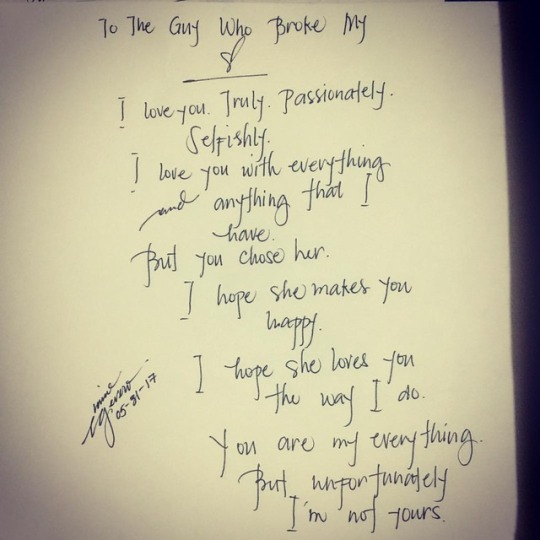 To The Guy Who Broke My
I love you. Truly. Passionately.
Selfishly.
I love you with everything
and anything that I
have.
But you chose her.
I hope she makes you
happy.
I hope she loves you
the way I do.
You are my everything.
But unfortunately
I'm not yours.
05-31-17